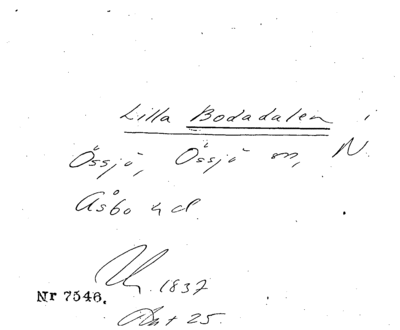 Lilla Bodadalen i
Össjö, Össjö sn, N.
Åsbo hd.
1837
Nr 7546.
25.